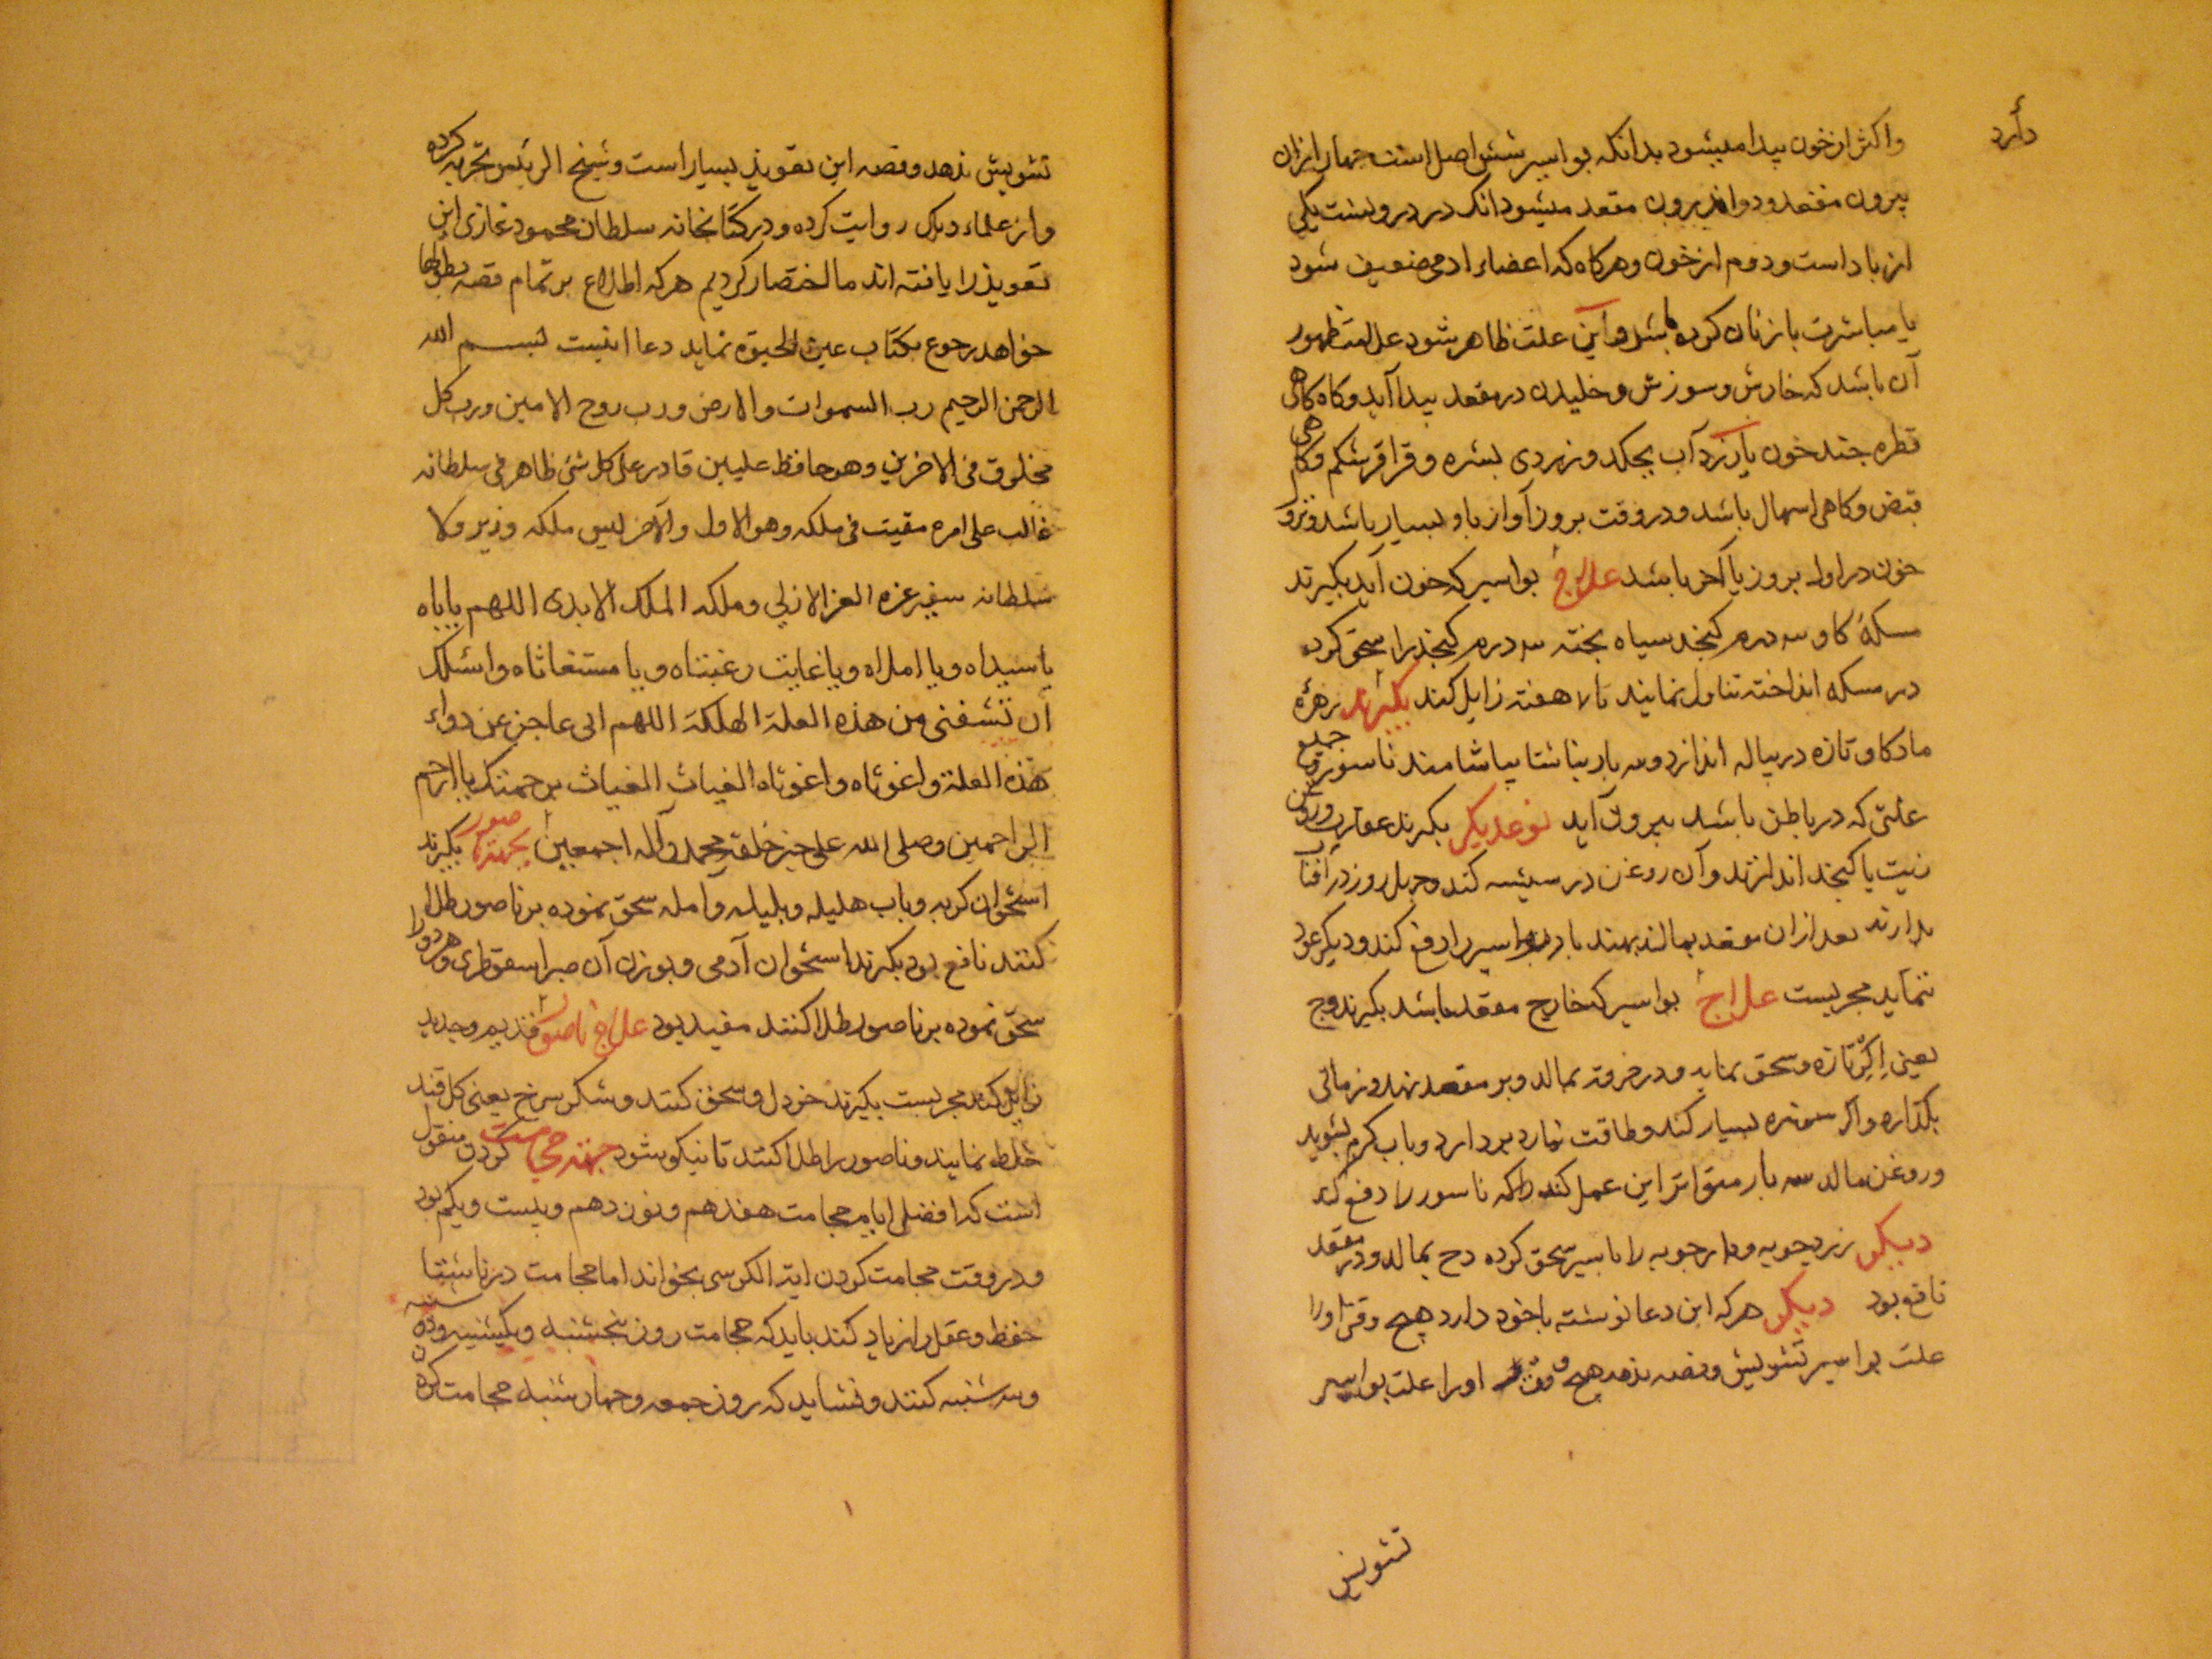 دارد
واکثر از خون پیدا میشود بدانکه بواسیر شش اصل است چهار ازان
بیرون مقعد و دو اندرون مقعد میشود انک در درونست یکی
از باد است و دوم از خون و هرکاه که اعضاء ادمی ضعیف شود
یا مباشرت با زنان کرده باشد و این علت ظاهر شود علامت ظهور
آن باشد که خارش و سوزش و خلیدن در مقعد پیدا آید وکاه کاهی
قطره چند خون یا زرد آب بچکد و زردی بشره و قراقر شکم وکاهی
قبض وکاهی اسهال باشد و در وقت بروز آواز باد بسیار باشد و
خون در اول بروز یا آخر باشد علاج بواسیر که خون آید بکیرند
مسکهٔ کاو سه درم کنجد سیاه پخته سه درم کنجد را سحق کرده
در مسکه انداخته تناول نمایند تا هفته زایل کند بکیرند زهرهٔ
ماده کاو تازه در پیاله اندازد و سه بار بناشتا بیاشامند ناسور جمیع
علتی که در باطن باشد بیرون آید نوعدیکر بکیرند عقارب در روغن
زیت یا کنجد اندازند وآن روغن در شیشه کند و چهل روز در آفتاب
بدارند بعد ازان مقعد بمالند بهند باد بواسیر را دفع کند و دیکر عود
ننماید مجربست علاج بواسیر که خارج مقعد باشد بکیرند وج
یعنی اکر تازه و سحق نماید و در خرقه بمالد و بر مقعد نهد و زمانی
بکذاره واکر سوزه بسیار کند و طاقت ندارد بردارد و باب کرم بشوید
و روغن مالد سه بار متواتر این عمل کند که ناسور را دفع کند
دیکر زردچوبه و دارچوبه را با شیر سحق کرده بمالد و در مقعد
نافع بود دیکر هرکه این دعا نوشته با خود دارد هیچ وقتی او را
علت بواسیر تشویش و نصه ندهد هیچ وقت اورا علت بواسیر
تشویش
تشویش ندهد و قصه این تعویذ بسیار است و شیخ الرئیس تجربه کرده
و از علماء دیکر روایت کرده و در کتابخانه سلطان محمود غازی این
تعویذ را یافته اند ما اختصار کردیم هرکه اطلاع بر تمام قصه بطولها
خواهد رجوع بکتاب عین الحیوة نماید دعا اینست بسم الله
الرحمن الرحیم رب السموات والارض ورب روح الامین ورب کل
مخلوق فی الاخرین وهو حافظ علیین قادر علی کل شئ ظاهر فی سلطانه
غالب علی امره مقیت فی ملکه وهو الاول والآخر لیس ملکه وزیر ولا
سلطانه سفیر عزه العز الازلی وملکه الملک الابدی اللهم یاباه
یا سیداه ویا املاه ویا غایت رغبتاه ویا مستغاثاه واسئلک
ان تشفنی من هذه العلة الهلکة اللهم انی عاجز عن دواء
هذه العلة واغوثاه واغوثاه الغیاث الغیاث برحمتک یا ارحم
الراحمین وصلی الله علی خیر خلقه محمد وآله اجمعین بجهة ناصور بکیرند
استخوان کربه وباب هلیله و بلیله و آمله سحق نموده بر ناصور طلا
کنند نافع بود بکیرند استخوان آدمی و بوزن آن صبر اسقوطری و هر دو را
سحق نموده بر ناصور طلا کنند مفید بود علاج ناصور قدیم و جدید
زایل کند مجربست بکیرند خردل و سحق کنند و شکر سرخ یعنی کل قند
خلط نمایند و ناصور را طلا کنند تا نیکو شود جهته حجامت کردن منقول
است که افضل ایام حجامت هفدهم و نوزدهم و بیست و یکم بود
و در وقت حجامت کردن ایة الکرسی بخواند اما حجامت در ناشتا
حفظ و عقل را زیاد کند باید که حجامت روز پنجشنبه و یکشنبه و دوشنبه
و سه شنبه کنند و نشاید که روز جمعه و چهار شنبه حجامت کردن